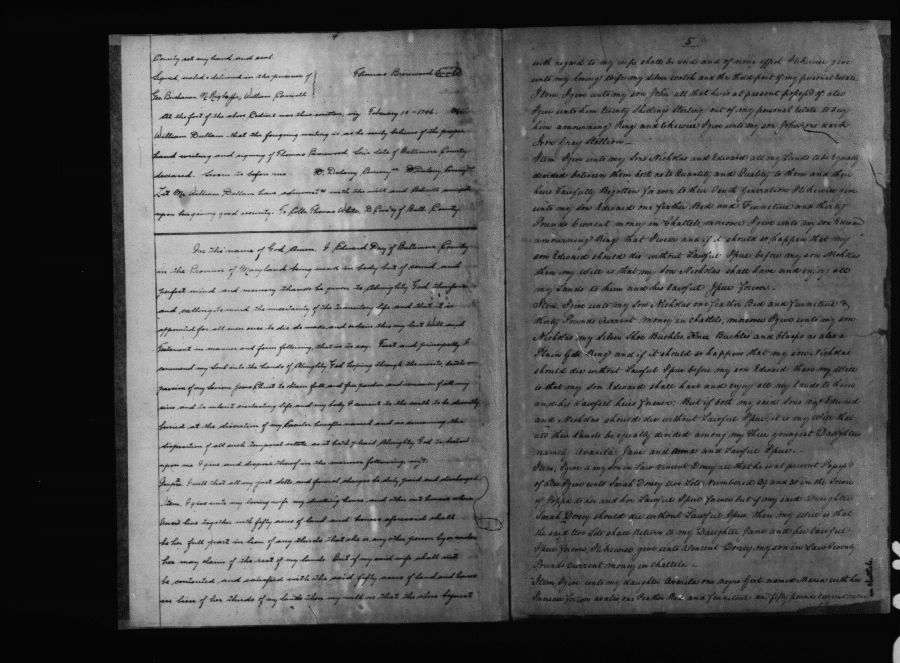 4
County set my hand and seal
Signed sealed & delivered in the presence of Thomas Brerewood Seal
Geo Buchanan William
At the foot of the above Codicil was thus written, viz. February 10 - 1746.
William Dallam that the foregoing writing is as he verily believes of the proper
hand writing and signing of Thomas Brerewood late of Baltimore County
deceased. Sworn to before me
Let Mr. William Dallam have administ'n with the will and annexed
upon his giving good security. To Coll. Thomas White D. Com'y of Balt. County
In the name of God Amen. I Edward Day of Baltimore County
in the Province of Maryland being weak in body but of sound and
perfect mind and memory thanks be given to Almighty God therefore
and calling to mind the uncertainty of the transitory life and that it is
appointed for all men once to die do make and ordain this my last Will and
Testament in manner and form following, that is to say. First and principally I
commend my soul into the hands of Almighty God hoping through the merits death &
passion of my Saviour Jesus Christ to obtain full and free pardon and remission of all my
sins and to inherit everlasting life and my body I commit to the earth to be decently
buried at the discretion of my Executor hereafter named and as concerning the
disposition of all such temporal estate as it hath pleased Almighty God to bestow
upon me I give and dispose thereof in the manner following viz't
Impr's. I will that all my just debts and funeral charges be duly paid and discharged
Item, I give unto my loving wife my dwelling house and other out houses where
I now live together with fifty acres of land and houses aforesaid shall
be her full part in lieu of any thirds that she or any other person by or under
her may claim of the rest of my lands But if my said wife shall not
be contented and satisfied with the said fifty acres of land and houses
in lieu of her thirds of my lands then my will is that the above bequest
5
with regard to my wife shall be void and of none effect I likewise give
unto my loving wife my silver watch and the third part of my personal estate.
Item I give unto my son John all that he is at present possessed of also
I give unto him twenty Shillings sterling out of my personal estate to buy
him a mourning Ring and likewise I give unto my son
Iron Gray Stallion
Item I give unto my Sons Nicholas and Edward all my Lands to be Equally
divided between them both as to Quantity and Quality to them and their
heirs Lawfully Begotten for ever to their Tenth Generation I likewise give
unto my son Edward one feather Bed and Furniture and thirty
Pounds Current money in Chattels moreover I give unto my son Edward
a mourning Ring that I wear and if it should so happen that my
son Edward should die without Lawful Issue before my son Nicholas
then my Will is that my Son Nicholas shall have and enjoy all
my Lands to him and his lawfull Issue forever.
Item I give unto my Son Nicholas one Feather Bed and Furniture &
thirty Pounds Current money in chattels, moreover I give unto my son
Nicholas my Silver Shoe Buckles Knee Buckles and Clasps as also a
Plain Gold Ring and if it should so happen that my son Nicholas
should die without Lawful Issue before my son Edward then my Will
is that my Son Edward shall have and enjoy all my Lands to him
and his Lawfull heirs forever, But if both my said Sons viz't Edward
and Nicholas should die without Lawful Issue it is my Will that
all their Lands be equally divided among my three youngest Daughters
namely Avarila Jane and Anna and Lawful Issue.
Item, I give to my Son in Law Vincent Dorsey all that he is at present Possess'd
of also I give unto Sarah Dorsey two Lots Numbered 29 and 30 in the Town
of Joppa to her and her Lawful Issue forever but if my said Daughter
Sarah Dorsey should die without Lawful Issue then my Will is that
the said two Lots shall Return to my Daughter Jane and her lawful
Issue forever, I likewise give unto Vincent Dorsey my son in Law Twenty
Pounds Current money in Chattels
Item I give unto my daughter Avarila one negro Girl named Maria with her
Increase forever as also one Feather Bed and Furniture and fifty pounds Current money